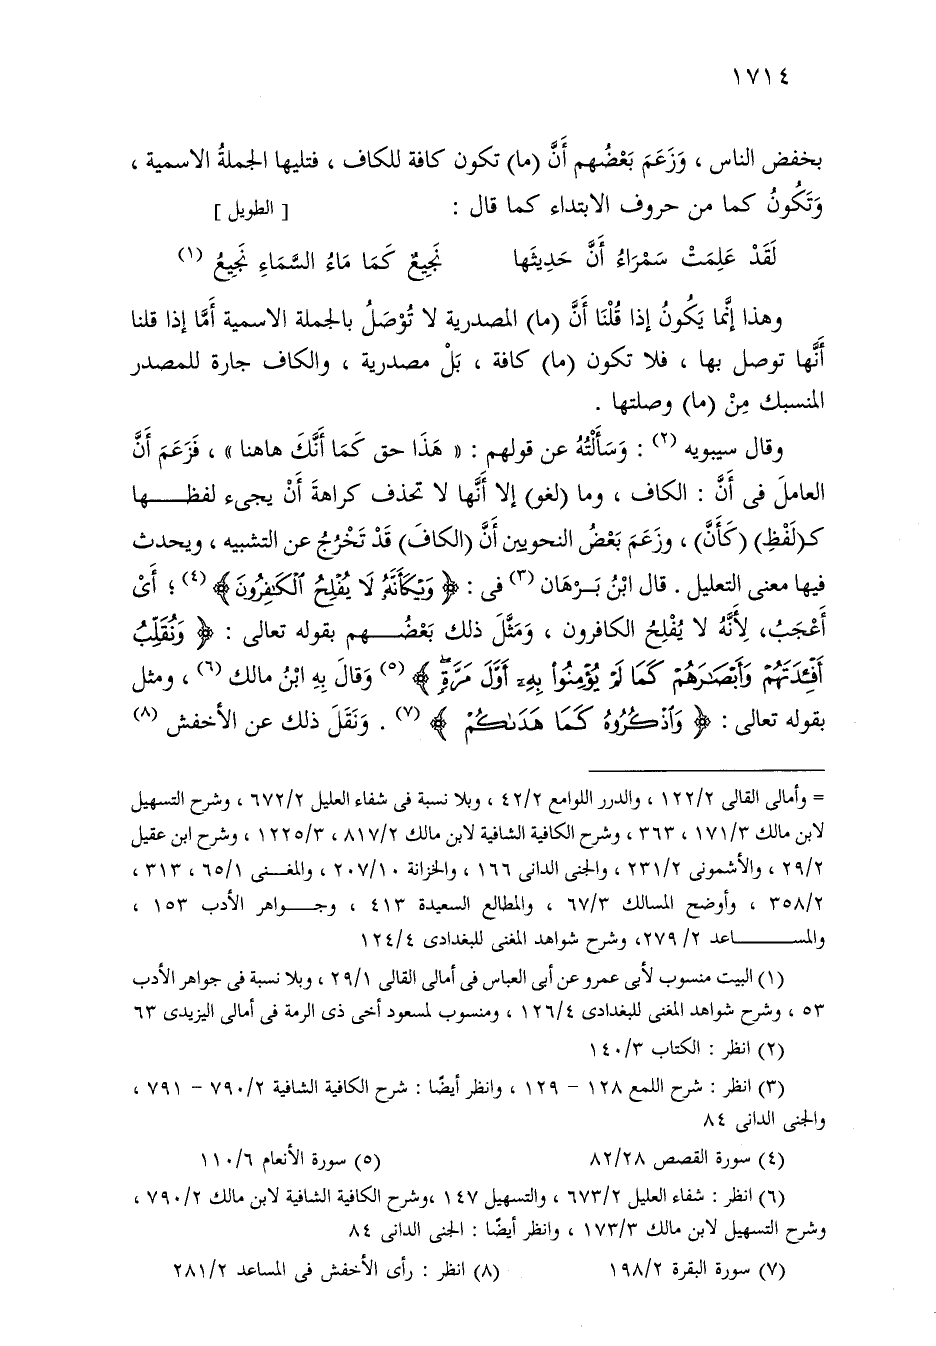 ١٧١٤
بخفض الناس ، وَزَعَمَ بَعْضُهم أَنَّ (ما) تكون كافة للكاف ، فتليها الجملةُ الاسمية ،
وَتَكُونُ كما من حروف الابتداء كما قال : [ الطويل ]
لَقَدْ عَلِمَتْ سَمْرَاءُ أَنَّ حَدِيثَها نَجِيعٌ كَمَا مَاءُ السَّمَاءِ نَجِيعُ (١)
وهذا إنَّما يَكُونُ إذا قُلْنَا أَنَّ (ما) المصدرية لا تُوْصَلُ بالجملة الاسمية أمَّا إذا قلنا
أَنَّها توصل بها ، فلا تكون (ما) كافة ، بَلْ مصدرية ، والكاف جارة للمصدر
المنسبك مِنْ (ما) وصلتها .
وقال سيبويه (٢) : وَسَأَلْتُهُ عن قولهم : « هَذَا حق كَمَا أَنَّكَ هاهنا » ، فَزَعَمَ أَنَّ
العاملَ فى أَنَّ : الكاف ، وما (لغو) إلا أَنَّها لا تحذف كراهةَ أَنْ يجىء لفظـــها
كـ(لَفْظِ) (كَأَنَّ) ، وزَعَمَ بَعْضُ النحويين أَنَّ (الكافَ) قَدْ تَخْرُجُ عن التشبيه ، ويحدث
فيها معنى التعليل . قال ابْنُ بَـرْهَان (٣) فى : ﴿ وَيْكَأَنَّهُۥ لَا يُفْلِحُ ٱلْكَٰفِرُونَ ﴾ (٤) ؛ أَىْ
أَعْجَبُ، لِأَنَّهُ لا يُفْلِحُ الكافرون ، وَمَثَّلَ ذلك بَعْضُـــهم بقوله تعالى : ﴿ وَنُقَلِّبُ
أَفْـِٔدَتَهُمْ وَأَبْصَٰرَهُمْ كَمَا لَمْ يُؤْمِنُوا۟ بِهِۦٓ أَوَّلَ مَرَّةٍ ﴾ (٥) وَقالَ بِهِ ابْنُ مالك (٦) ، ومثل
بقوله تعالى : ﴿ وَٱذْكُرُوهُ كَمَا هَدَىٰكُمْ ﴾ (٧) . وَنَقَلَ ذلك عن الأخفش (٨)
= وأمالى القالى ١٢٢/٢ ، والدرر اللوامع ٤٢/٢ ، وبلا نسبة فى شفاء العليل ٦٧٢/٢ ، وشرح التسهيل
لابن مالك ١٧١/٣ ، ٣٦٣ ، وشرح الكافية الشافية لابن مالك ٨١٧/٢ ، ١٢٢٥/٣ ، وشرح ابن عقيل
٢٩/٢ ، والأشمونى ٢٣١/٢ ، والجنى الدانى ١٦٦ ، والخزانة ٢٠٧/١٠ ، والمغــنى ٦٥/١ ، ٣١٣ ،
٣٥٨/٢ ، وأوضح المسالك ٦٧/٣ ، والمطالع السعيدة ٤١٣ ، وجـــواهر الأدب ١٥٣ ،
والمســـــاعد ٢٧٩/٢ ، وشرح شواهد المغنى للبغدادى ١٢٤/٤
(١) البيت منسوب لأبى عمرو عن أبى العباس فى أمالى القالى ٢٩/١ ، وبلا نسبة فى جواهر الأدب
٥٣ ، وشرح شواهد المغنى للبغدادى ١٢٦/٤ ، ومنسوب لمسعود أخى ذى الرمة فى أمالى اليزيدى ٦٣
(٢) انظر : الكتاب ١٤٠/٣
(٣) انظر : شرح اللمع ١٢٨ – ١٢٩ ، وانظر أيضًا : شرح الكافية الشافية ٧٩٠/٢ – ٧٩١ ،
والجنى الدانى ٨٤
(٤) سورة القصص ٨٢/٢٨ (٥) سورة الأنعام ١١٠/٦
(٦) انظر : شفاء العليل ٦٧٣/٢ ، والتسهيل ١٤٧ ،وشرح الكافية الشافية لابن مالك ٧٩٠/٢ ،
وشرح التسهيل لابن مالك ١٧٣/٣ ، وانظر أيضًا : الجنى الدانى ٨٤
(٧) سورة البقرة ١٩٨/٢ (٨) انظر : رأى الأخفش فى المساعد ٢٨١/٢